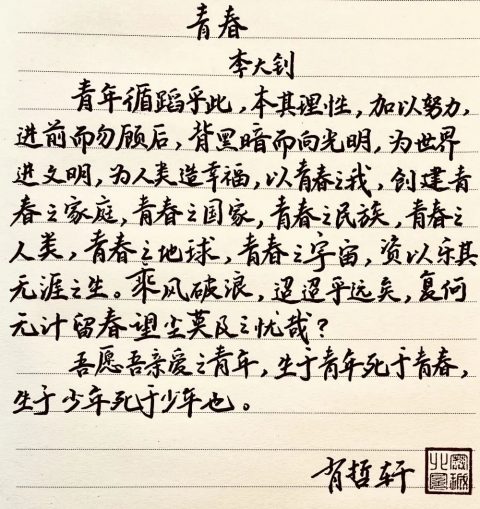 青春
李大钊
青年循蹈乎此，本其理性，加以努力，
进前而勿顾后，背黑暗而向光明，为世界
进文明，为人类造幸福，以青春之我，创建青
春之家庭，青春之国家，青春之民族，青春之
人类，青春之地球，青春之宇宙，资以乐其
无涯之生。乘风破浪，迢迢乎远矣，复何
无计留春望尘莫及之忧哉？
吾愿吾亲爱之青年，生于青年死于青春，
生于少年死于少年也。
肖哲轩